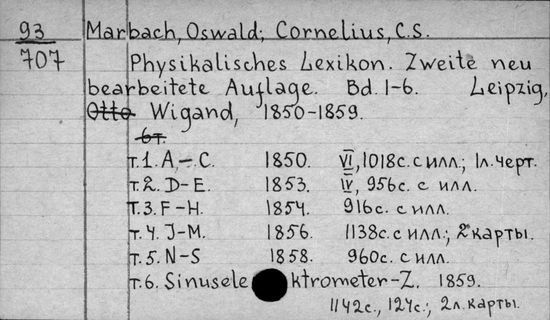 93 Marbach, Oswald; Cornelius, C.S.
707 Physikalisches Lexikon. Zweite neu
bearbeitete Auflage. Bd. 1-6. Leipzig,
Otto Wigand, 1850-1859.
6т.
т.1. A.-C. 1850. VI, 1018с. с илл.; 1л. черт.
т.2. D-E. 1853. IV, 956с. с илл.
т.3. F-H. 1854. 916с. с илл.
т.4. J-M. 1856. 1138с. с илл.; 2 карты.
т.5. N-S 1858. 960с. с илл.
т.6. Sinuselektrometer-Z. 1859.
1142с., 124с.; 2л. карты.